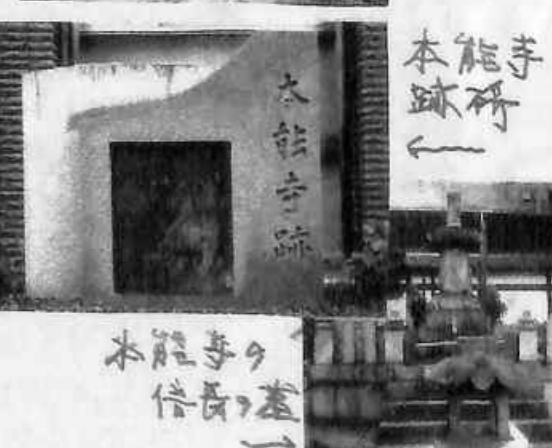 本能寺跡
本能寺
跡碑
←
本能寺の
信長の墓
→